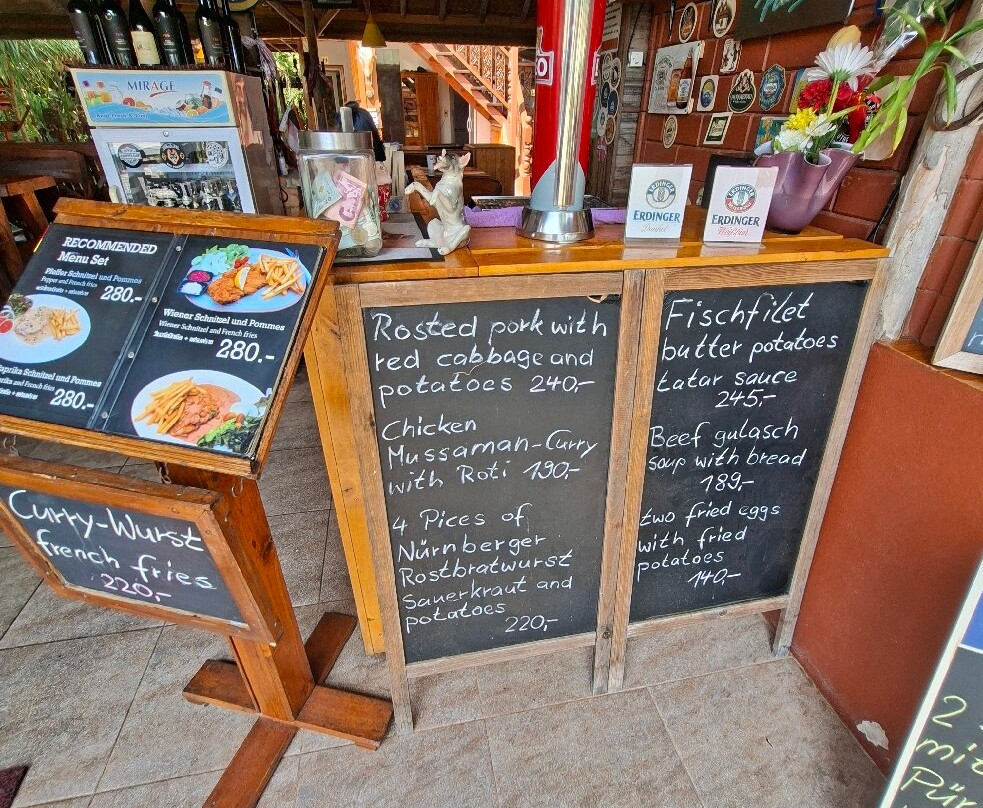 MIRAGE
RECOMMENDED
Menu Set
Pfeffer Schnitzel und Pommes
Pepper and French fries
280.-
Paprika Schnitzel und Pommes
280.-
Wiener Schnitzel und Pommes
Wiener Schnitzel and French fries
280.-
Curry-Wurst
french fries
220,-
Rosted pork with
red cabbage and
potatoes 240,-
Chicken
Mussaman-Curry
with Roti 190,-
4 Pices of
Nürnberger
Rostbratwurst
Sauerkraut and
potatoes
220,-
ERDINGER
Dunkel
ERDINGER
Weißbier
Fischfilet
butter potatoes
tatar sauce
245,-
Beef gulasch
soup with bread
189,-
two fried eggs
with fried
potatoes
140,-
2
mit
Pür